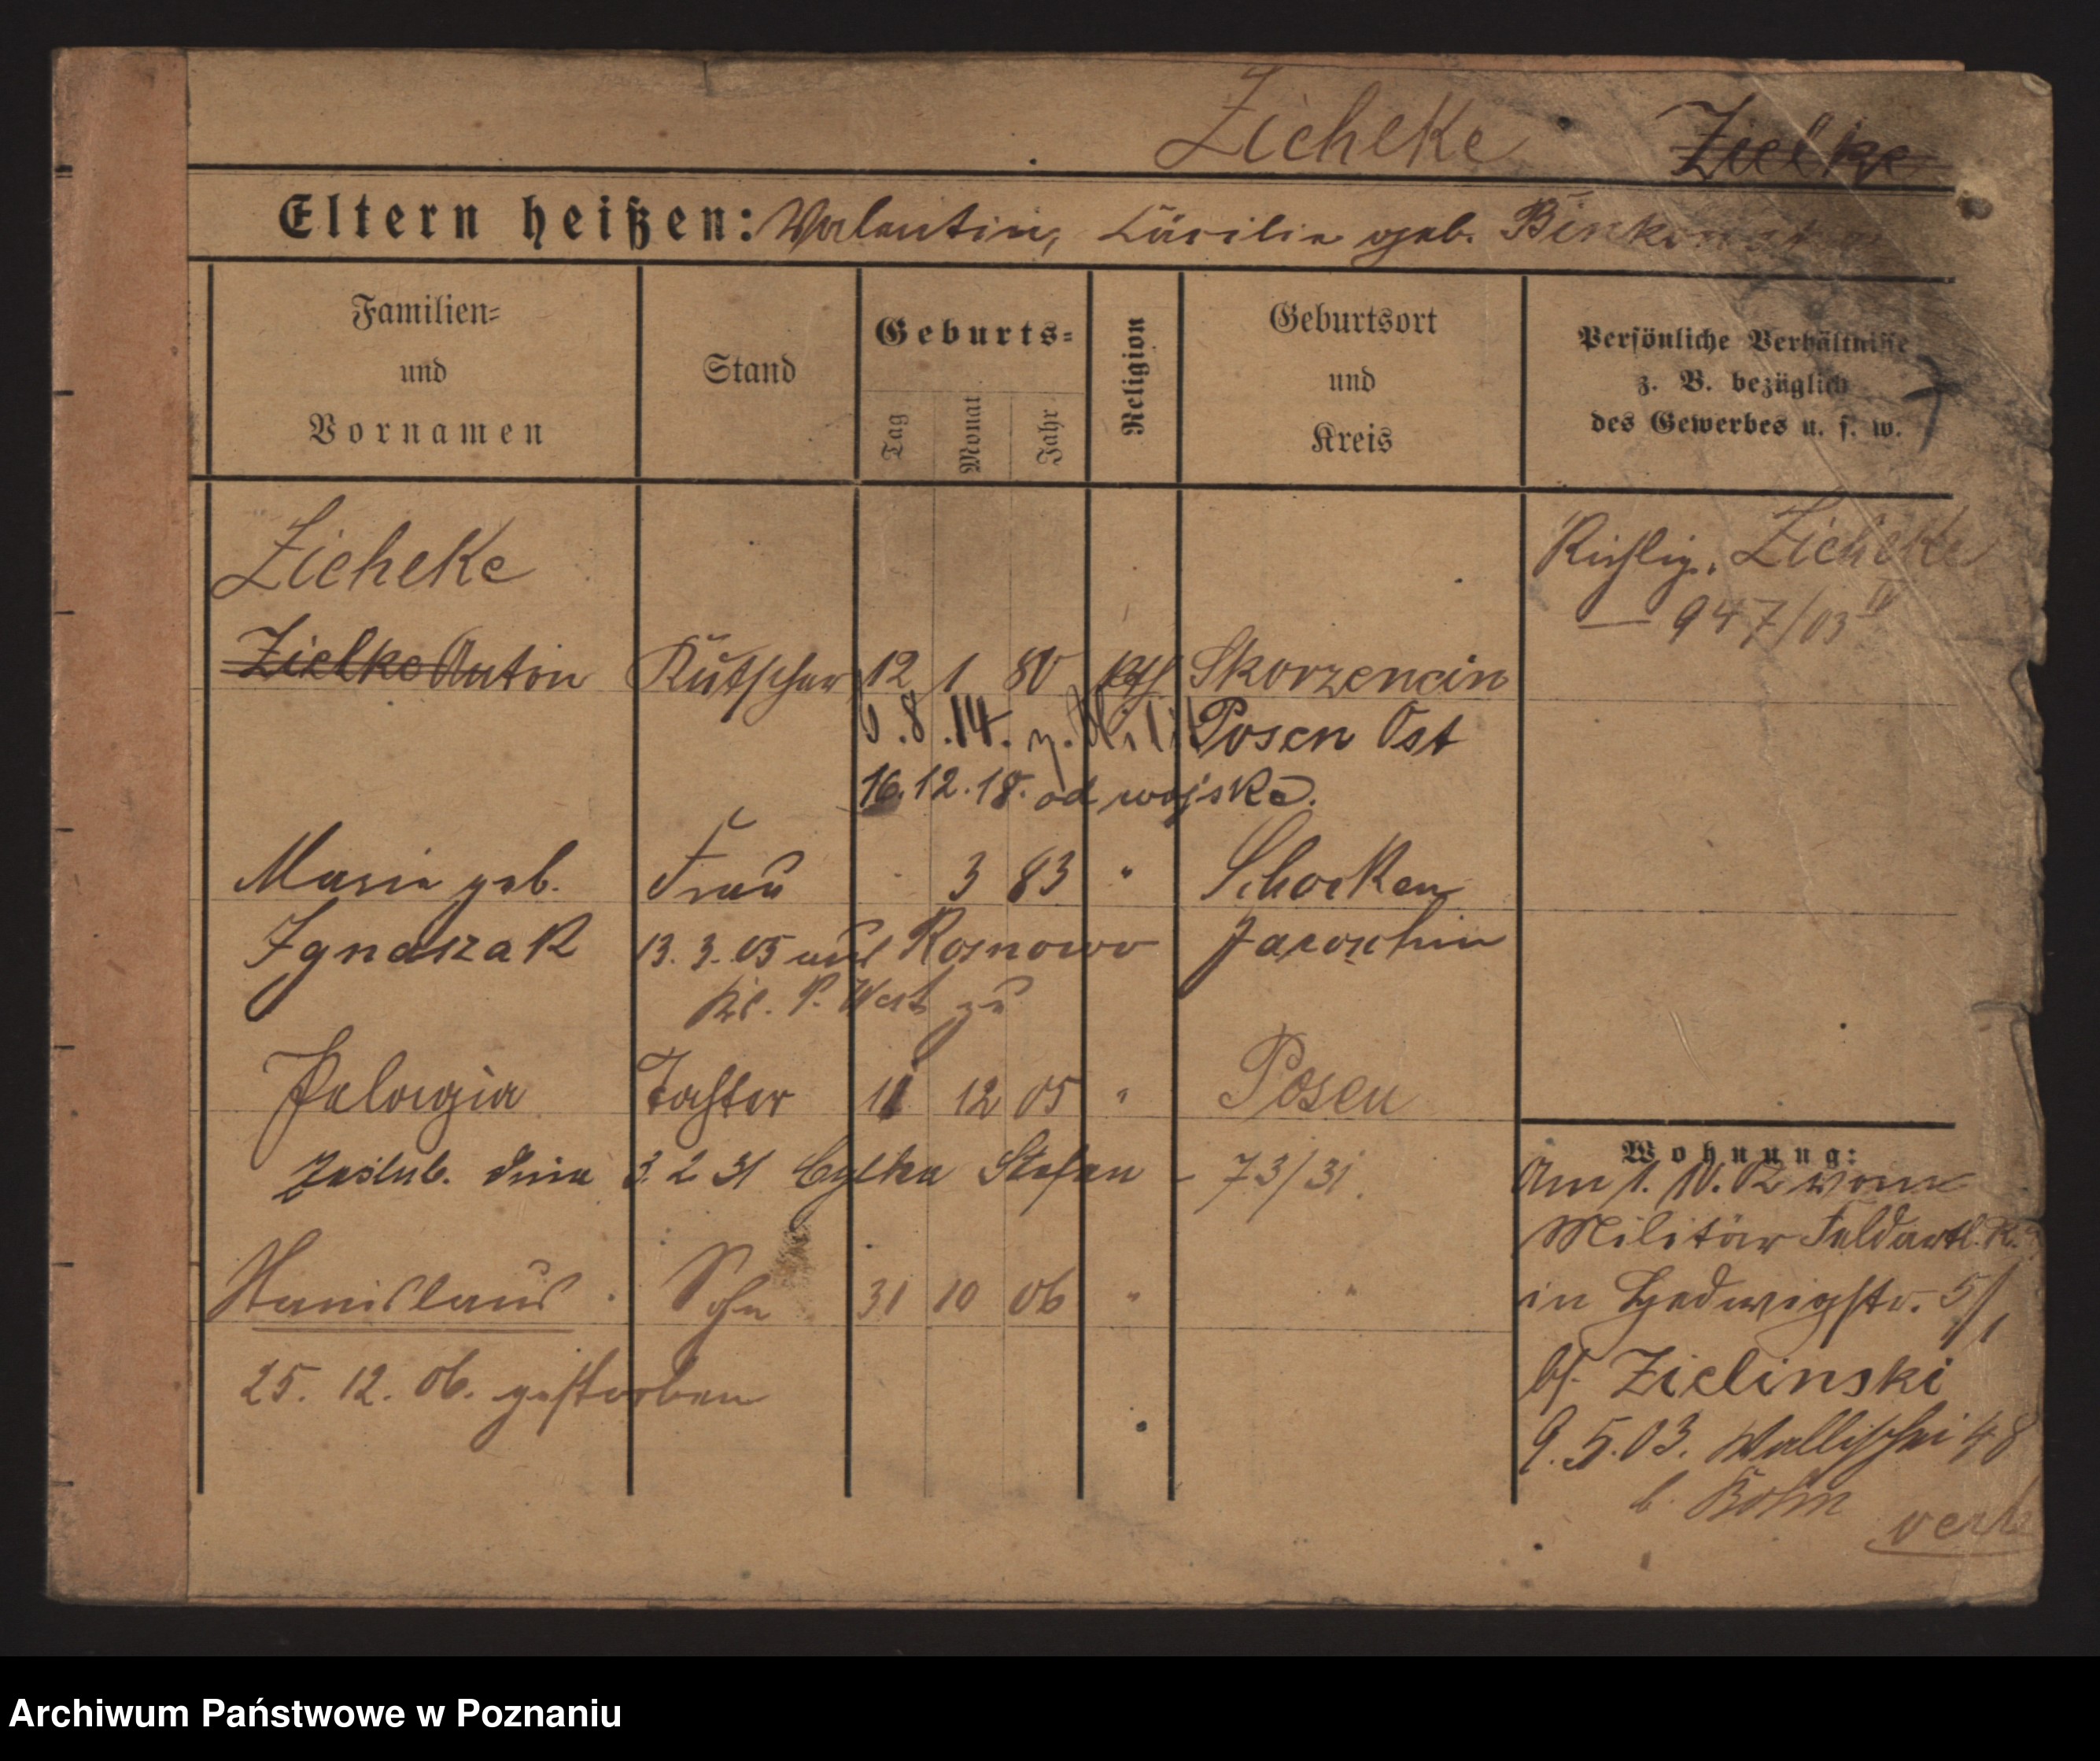 Zieheke Zielke
Eltern heißen: Valentin, Cäcilie geb.
Familien-
und
Vornamen
Stand
Geburts-
Tag
Monat
Jahr
Religion
Geburtsort
und
Kreis
Persönliche Verhältnisse
z. B. bezüglich
des Gewerbes u. s. w.
Zieheke
Richtig. Zieheke
947/03 IV
Zielke Anton Kutscher 12 1 80 kth Skorzencin
6.8.14. z. Milit. Posen Ost
16.12.18. od wojska.
Marie geb. Frau 3 83 " Schocken
Ignaszak 13.3.05 aus Rosnowo Jaroschin
Kr. P. West zu
Pelagia Tochter 11 12 05 " Posen
Zaślub. dnia 3.2.31 Cylka Stefan - 73/31.
Stanislaus Sohn 31 10 06 " "
25. 12. 06. gestorben
Wohnung:
Am 1. 10. 02 vom
Militär Feldartl. R.
in Hedwigstr. 5/1
bs. Zielinski
9.5.03. Wallischei 48
b. Böhm
verh
Archiwum Państwowe w Poznaniu